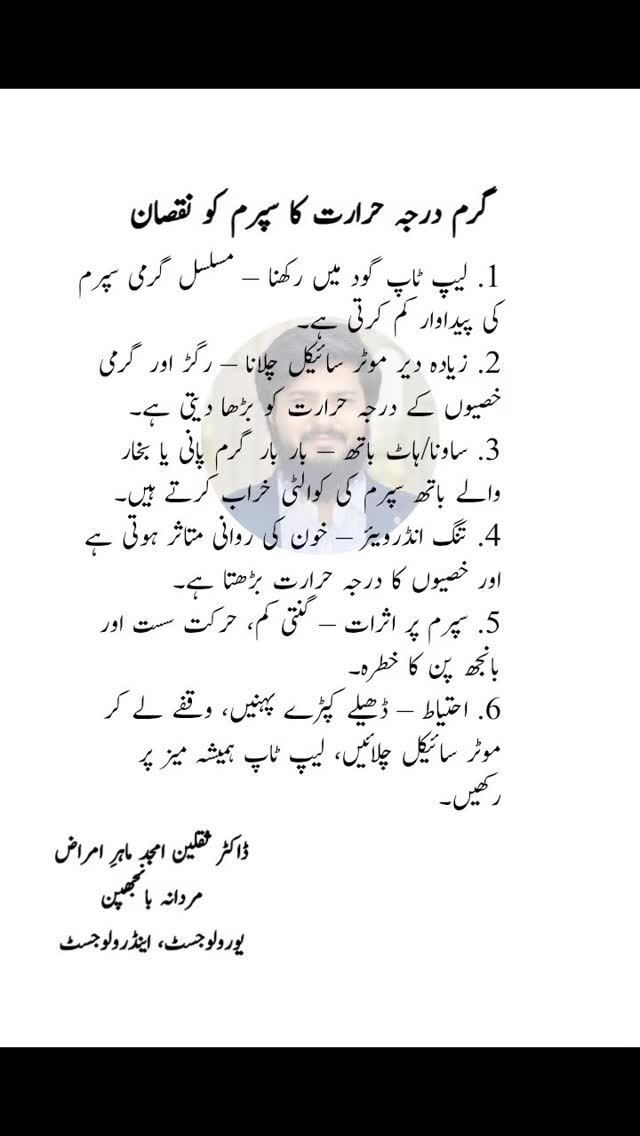 گرم درجہ حرارت کا سپرم کو نقصان
1. لیپ ٹاپ گود میں رکھنا – مسلسل گرمی سپرم
کی پیداوار کم کرتی ہے۔
2. زیادہ دیر موٹر سائیکل چلانا – رگڑ اور گرمی
خصیوں کے درجہ حرارت کو بڑھا دیتی ہے۔
3. ساونا/ہاٹ باتھ – بار بار گرم پانی یا بخار
والے باتھ سپرم کی کوالٹی خراب کرتے ہیں۔
4. تنگ انڈرویئر – خون کی روانی متاثر ہوتی ہے
اور خصیوں کا درجہ حرارت بڑھتا ہے۔
5. سپرم پر اثرات – گنتی کم، حرکت سست اور
بانجھ پن کا خطرہ۔
6. احتیاط – ڈھیلے کپڑے پہنیں، وقفے لے کر
موٹر سائیکل چلائیں، لیپ ٹاپ ہمیشہ میز پر
رکھیں۔
ڈاکٹر ثقلین امجد ماہرِ امراض
مردانہ بانجھپن
یورولوجسٹ، اینڈرولوجسٹ